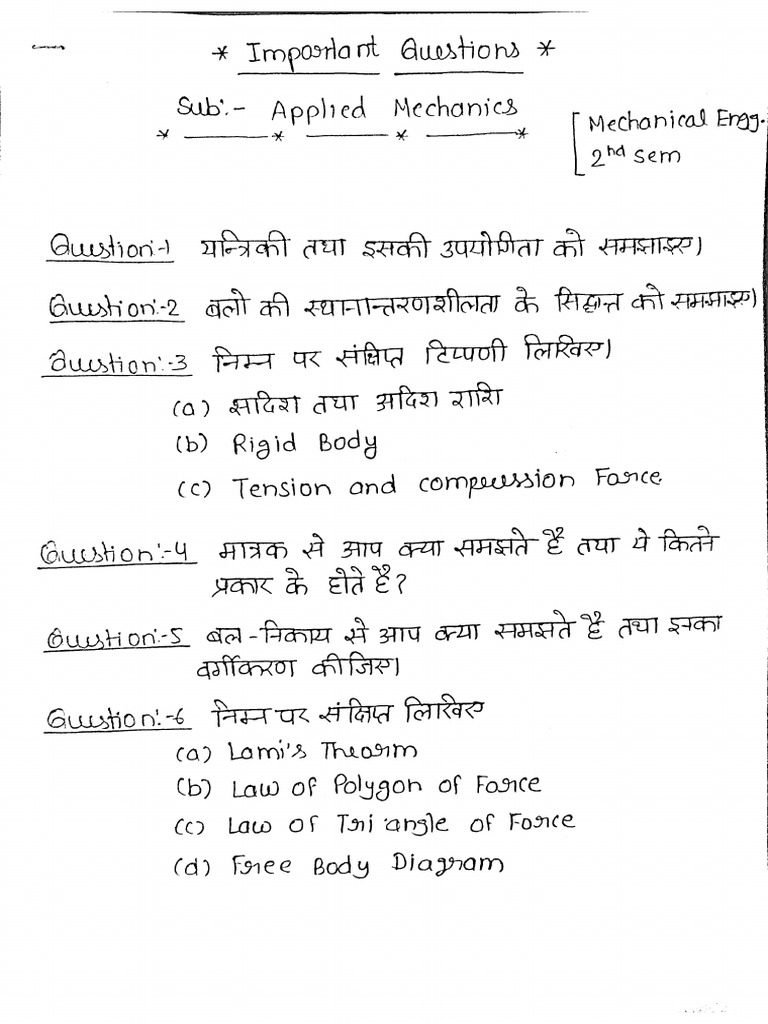 * Important Questions *
Sub:- Applied Mechanics
[Mechanical Engg.
2nd sem
Question:-1 यन्त्रिकी तथा इसकी उपयोगिता को समझाइए।
Question:-2 बलो की स्थानान्तरणशीलता के सिद्धान्त को समझाइए।
Question:-3 निम्न पर संक्षिप्त टिप्पणी लिखिए।
(a) सदिश तथा अदिश राशि
(b) Rigid Body
(c) Tension and compression Force
Question:-4 मात्रक से आप क्या समझते है तथा ये कितने
प्रकार के होते है?
Question:-5 बल-निकाय से आप क्या समझते है तथा इनका
वर्गीकरण कीजिए।
Question:-6 निम्न पर संक्षिप्त लिखिए
(a) Lami's Theorm
(b) Law of Polygon of Force
(c) Law of Triangle of Force
(d) Free Body Diagram